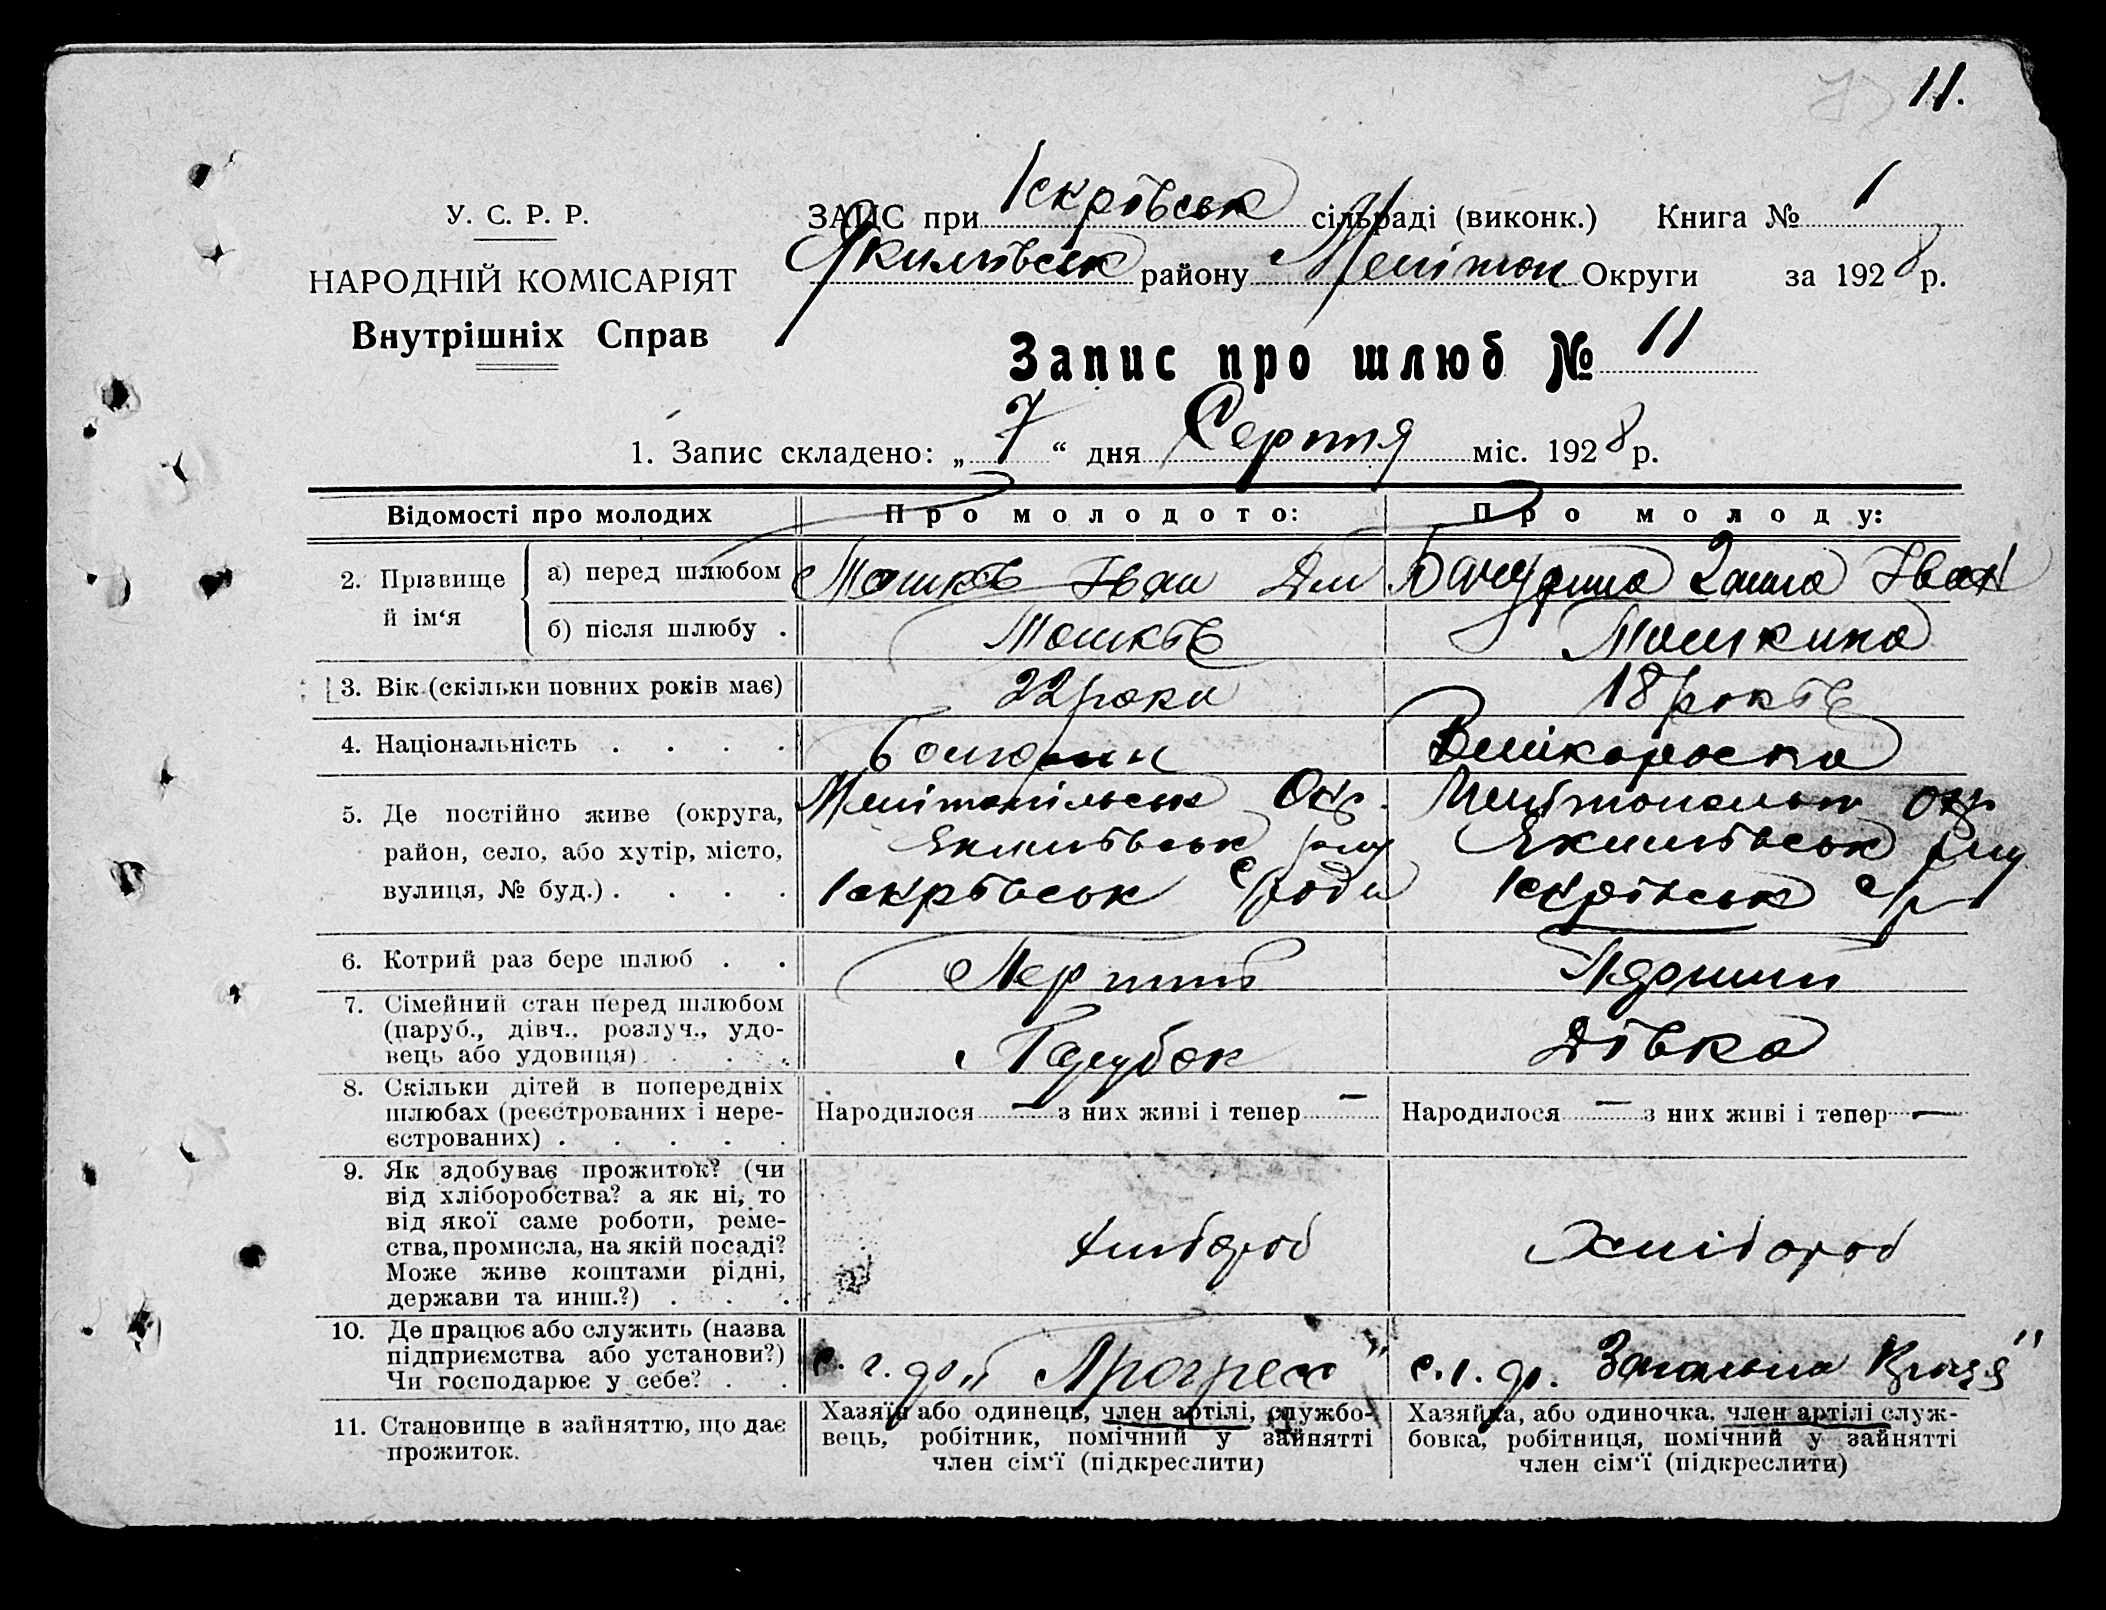 11.
У. С. Р. Р.
НАРОДНІЙ КОМІСАРІЯТ
Внутрішніх Справ
ЗАЦС при Іскрівськ сільраді (виконк.) Книга № 1
Якимівськ району Мелітоп Округи за 1928 р.
Запис про шлюб № 11
1. Запис складено: „ 7 “ дня Серпня міс. 1928 р.
Відомості про молодих
Про молодого:
Про молоду:
2. Прізвище й ім‘я
а) перед шлюбом
Іван
Іван
б) після шлюбу .
Машків
Машкина
3. Вік (скільки повних років має)
22 роки
18 років
4. Національність . . . .
Болгарин
Великороска
5. Де постійно живе (округа,
район, село, або хутір, місто,
вулиця, № буд.) . . . .
Мелітопільськ Окр.
Якимівськ
Іскрівськ с/ради
Мелітопольськ окр
Якимівськ
Іскрівськ с/р
6. Котрий раз бере шлюб . .
Перший
Перший
7. Сімейний стан перед шлюбом
(паруб., дівч., розлуч., удо-
вець або удовиця) . . .
Парубок
Дівка
8. Скільки дітей в попередніх
шлюбах (реєстрованих і нере-
єстрованих) . . . . .
Народилося — з них живі і тепер —
Народилося — з них живі і тепер —
9. Як здобуває прожиток? (чи
від хліборобства? а як ні, то
від якої саме роботи, реме-
ства, промисла, на якій посаді?
Може живе коштами рідні,
держави та инш.?) . . .
хлібороб
Хлібороб
10. Де працює або служить (назва
підприємства або установи?)
Чи господарює у себе? . .
с. г. „Прогрес“
с. г.
11. Становище в зайняттю, що дає
прожиток.
Хазяїн або одинець, член артілі, службо-
вець, робітник, помічний у зайнятті
член сім‘ї (підкреслити)
Хазяйка, або одиночка, член артілі служ-
бовка, робітниця, помічний у зайнятті
член сім‘ї (підкреслити)